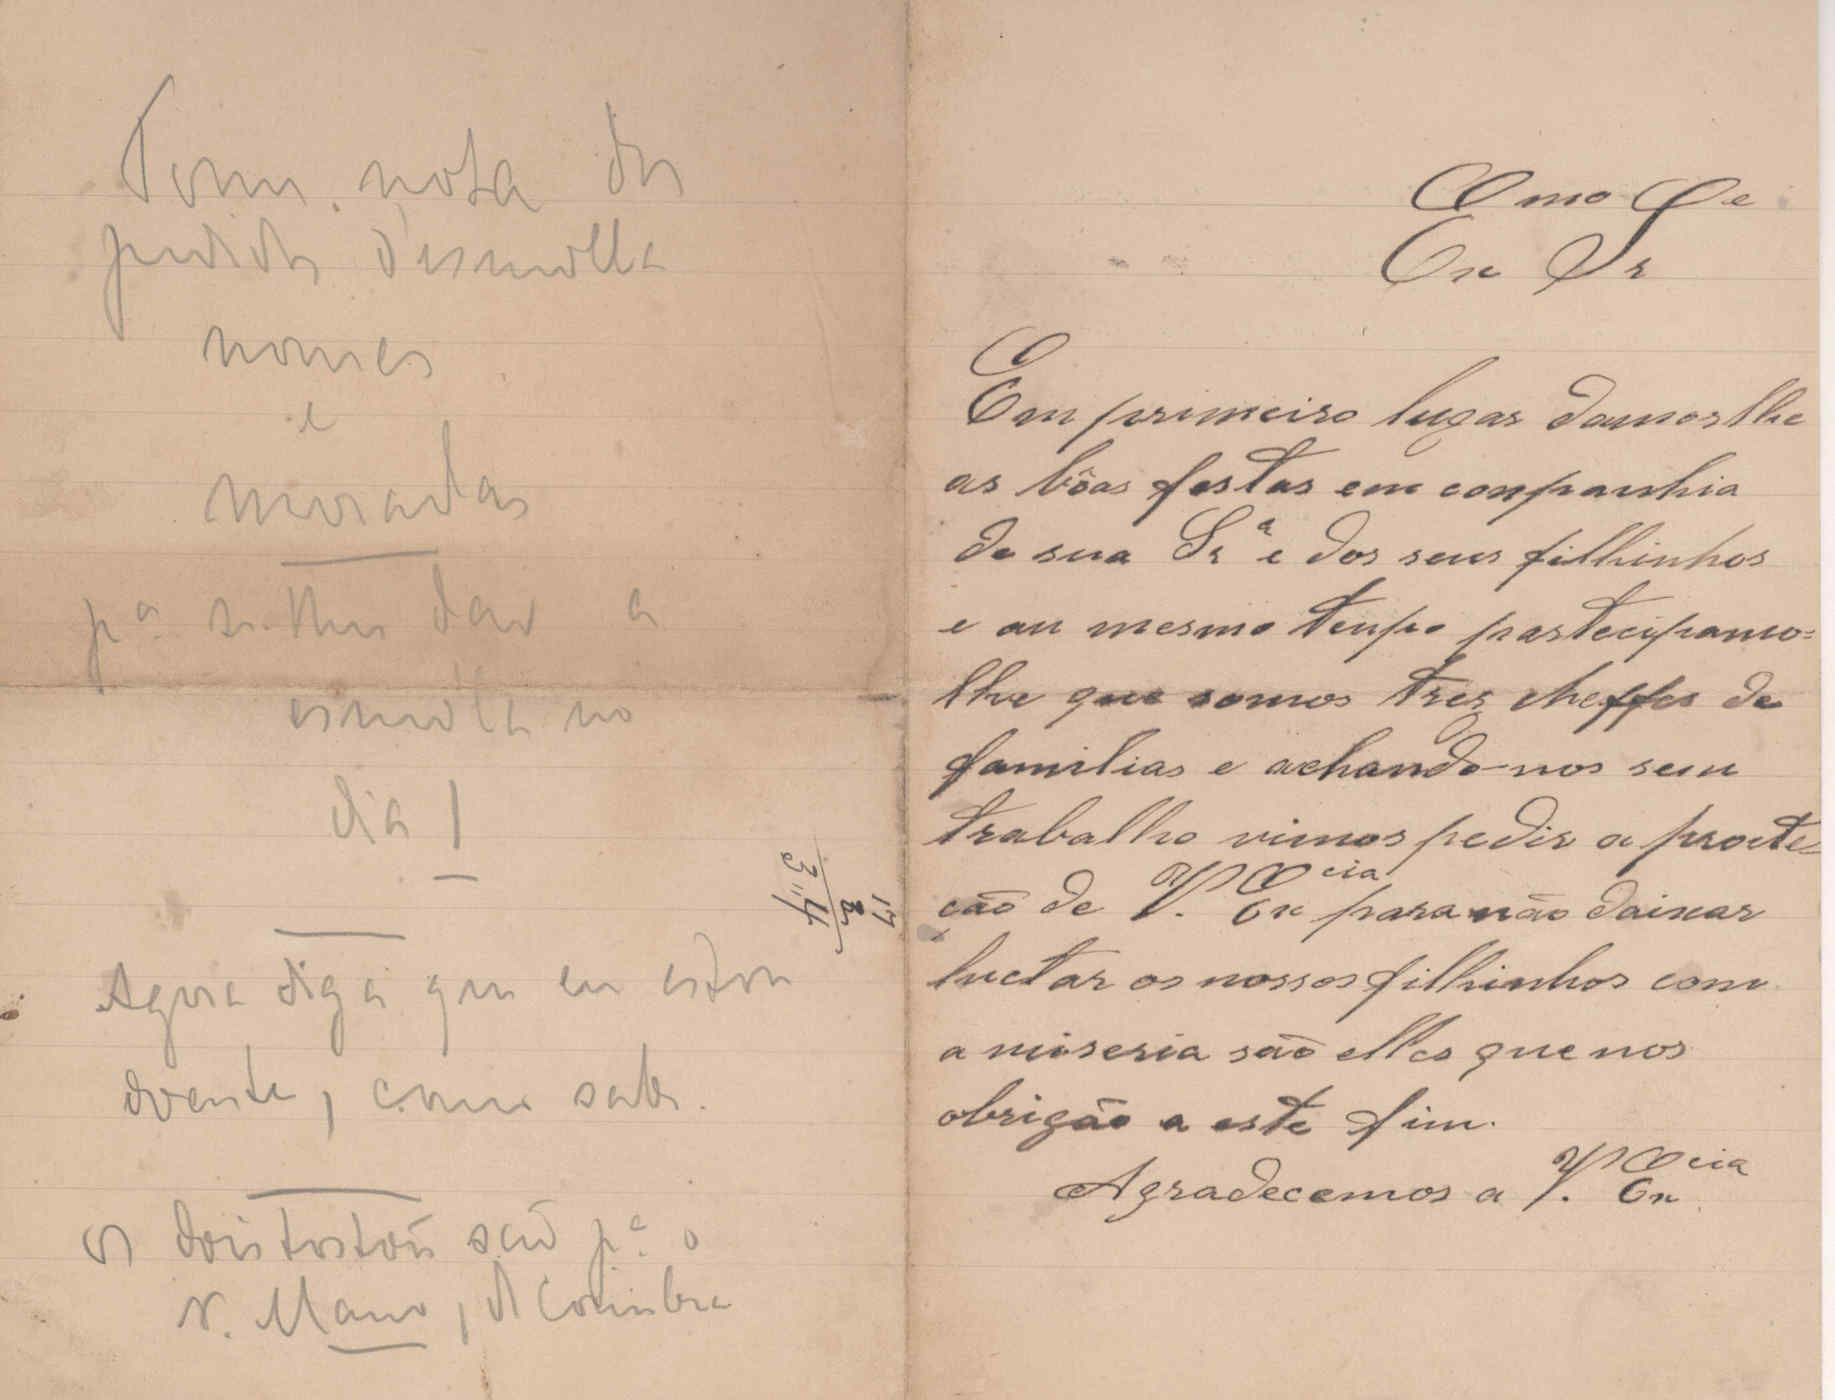 Tome nota dos
pedidos d'esmolla
nomes
e
moradas
pª se lhes dar a
esmolla no
dia 1
Agora diga que eu estou
doente, como sabe.
Os dois tostões são pª o
r. Mano, de Coimbra
17
2
34
Emo
Ex Sr
Em primeiro lugar damos lhe
as bôas festas em conpanhia
de sua Srª e dos seus filhinhos
e au mesmo tenpo partecipamo=
lhe que somos tres cheffes de
familias e achando-nos sem
trabalho vimos pedir a prote
cão de V. Excia para não daixar
luctar os nossos filhinhos com
a miseria são elles que nos
obrigão a este fim.
Agradecemos a V. Excia